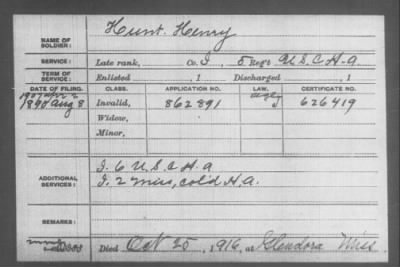 NAME OF SOLDIER: Hunt, Henry
SERVICE: Late rank, Co. I, 5 Reg't U.S.C.H.A
TERM OF SERVICE: Enlisted , 1 Discharged , 1
DATE OF FILING. CLASS. APPLICATION NO. LAW. CERTIFICATE NO.
1890 Aug 8 Invalid, 862891 626419
Widow,
Minor,
ADDITIONAL SERVICES: I. 6 U.S.C.H.A
I. 2 Miss, col'd H.A.
REMARKS:
Died Oct 25, 1916, at Glendora Miss